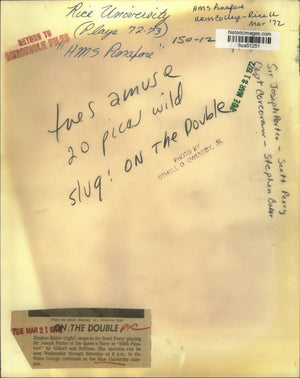 Rice University
(Plays 72-73)
"HMS Pinafore"
HMS Pinafore
Wiess College - Rice U
Mar '72
historicimages.com
hca51251
RETURN TO
150-12
TUE MAR 21 1972
Sir Joseph Porter - Scott Perry
Capt Corcoran - Stephen Baker
tues amuse
20 picas wild
slug: ON The Double
PHOTO BY
OTHELL O. OWENSBY, JR.
TUE MAR 21 1972
ON THE DOUBLE
pic
Stephen Baker (right) seems to be Scott Perry playing
Sir Joseph Porter of the Queen's Navy in "HMS Pina-
fore" by Gilbert and Sullivan. The operetta can be
seen Wednesday through Saturday at 8 p.m. in the
Wiess College commons on the Rice University cam-
pus.